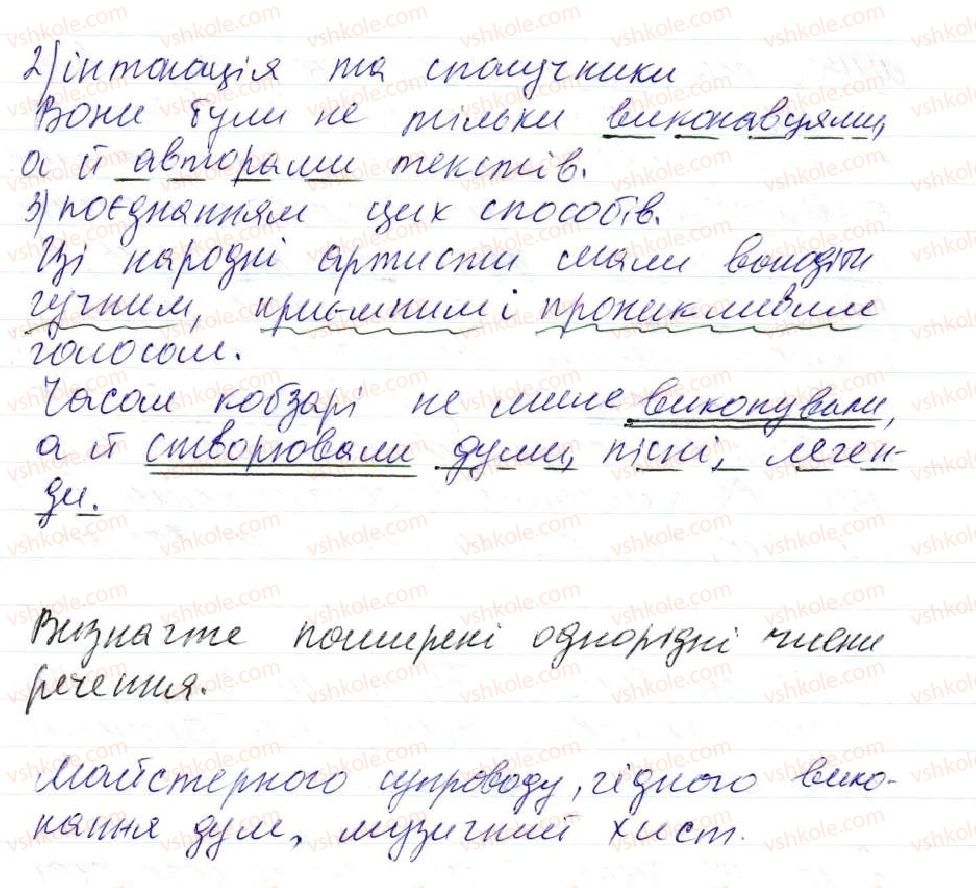 2) інтонація та сполучники
Вони були не тільки виконавцями,
а й авторами текстів.
3) поєднанням цих способів.
Ці народні артисти мали володіти
гучним, приємним і проникливим
голосом.
Часом кобзарі не лише виконували,
а й створювали думи, пісні, леген-
ди.
Визначте поширені однорідні члени
речення.
Майстерного супроводу, гідного вико-
нання дум, музичний хист.